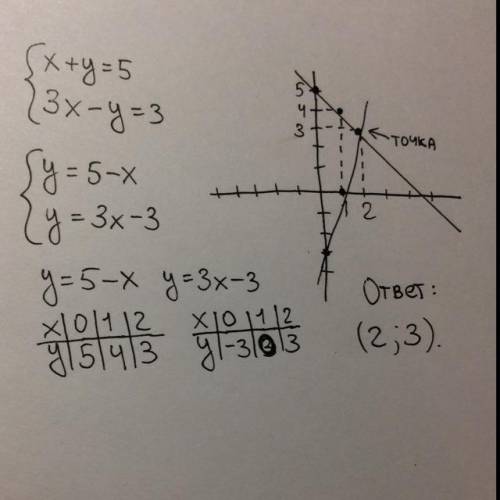 x+y=5
3x-y=3
y=5-x
y=3x-3
y=5-x y=3x-3
x|0|1|2
y|5|4|3
x|0|1|2
y|-3|0|3
5
4
3
точка
1 2
Ответ:
(2;3).